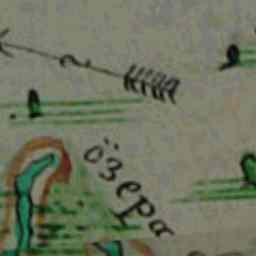 ӧзера